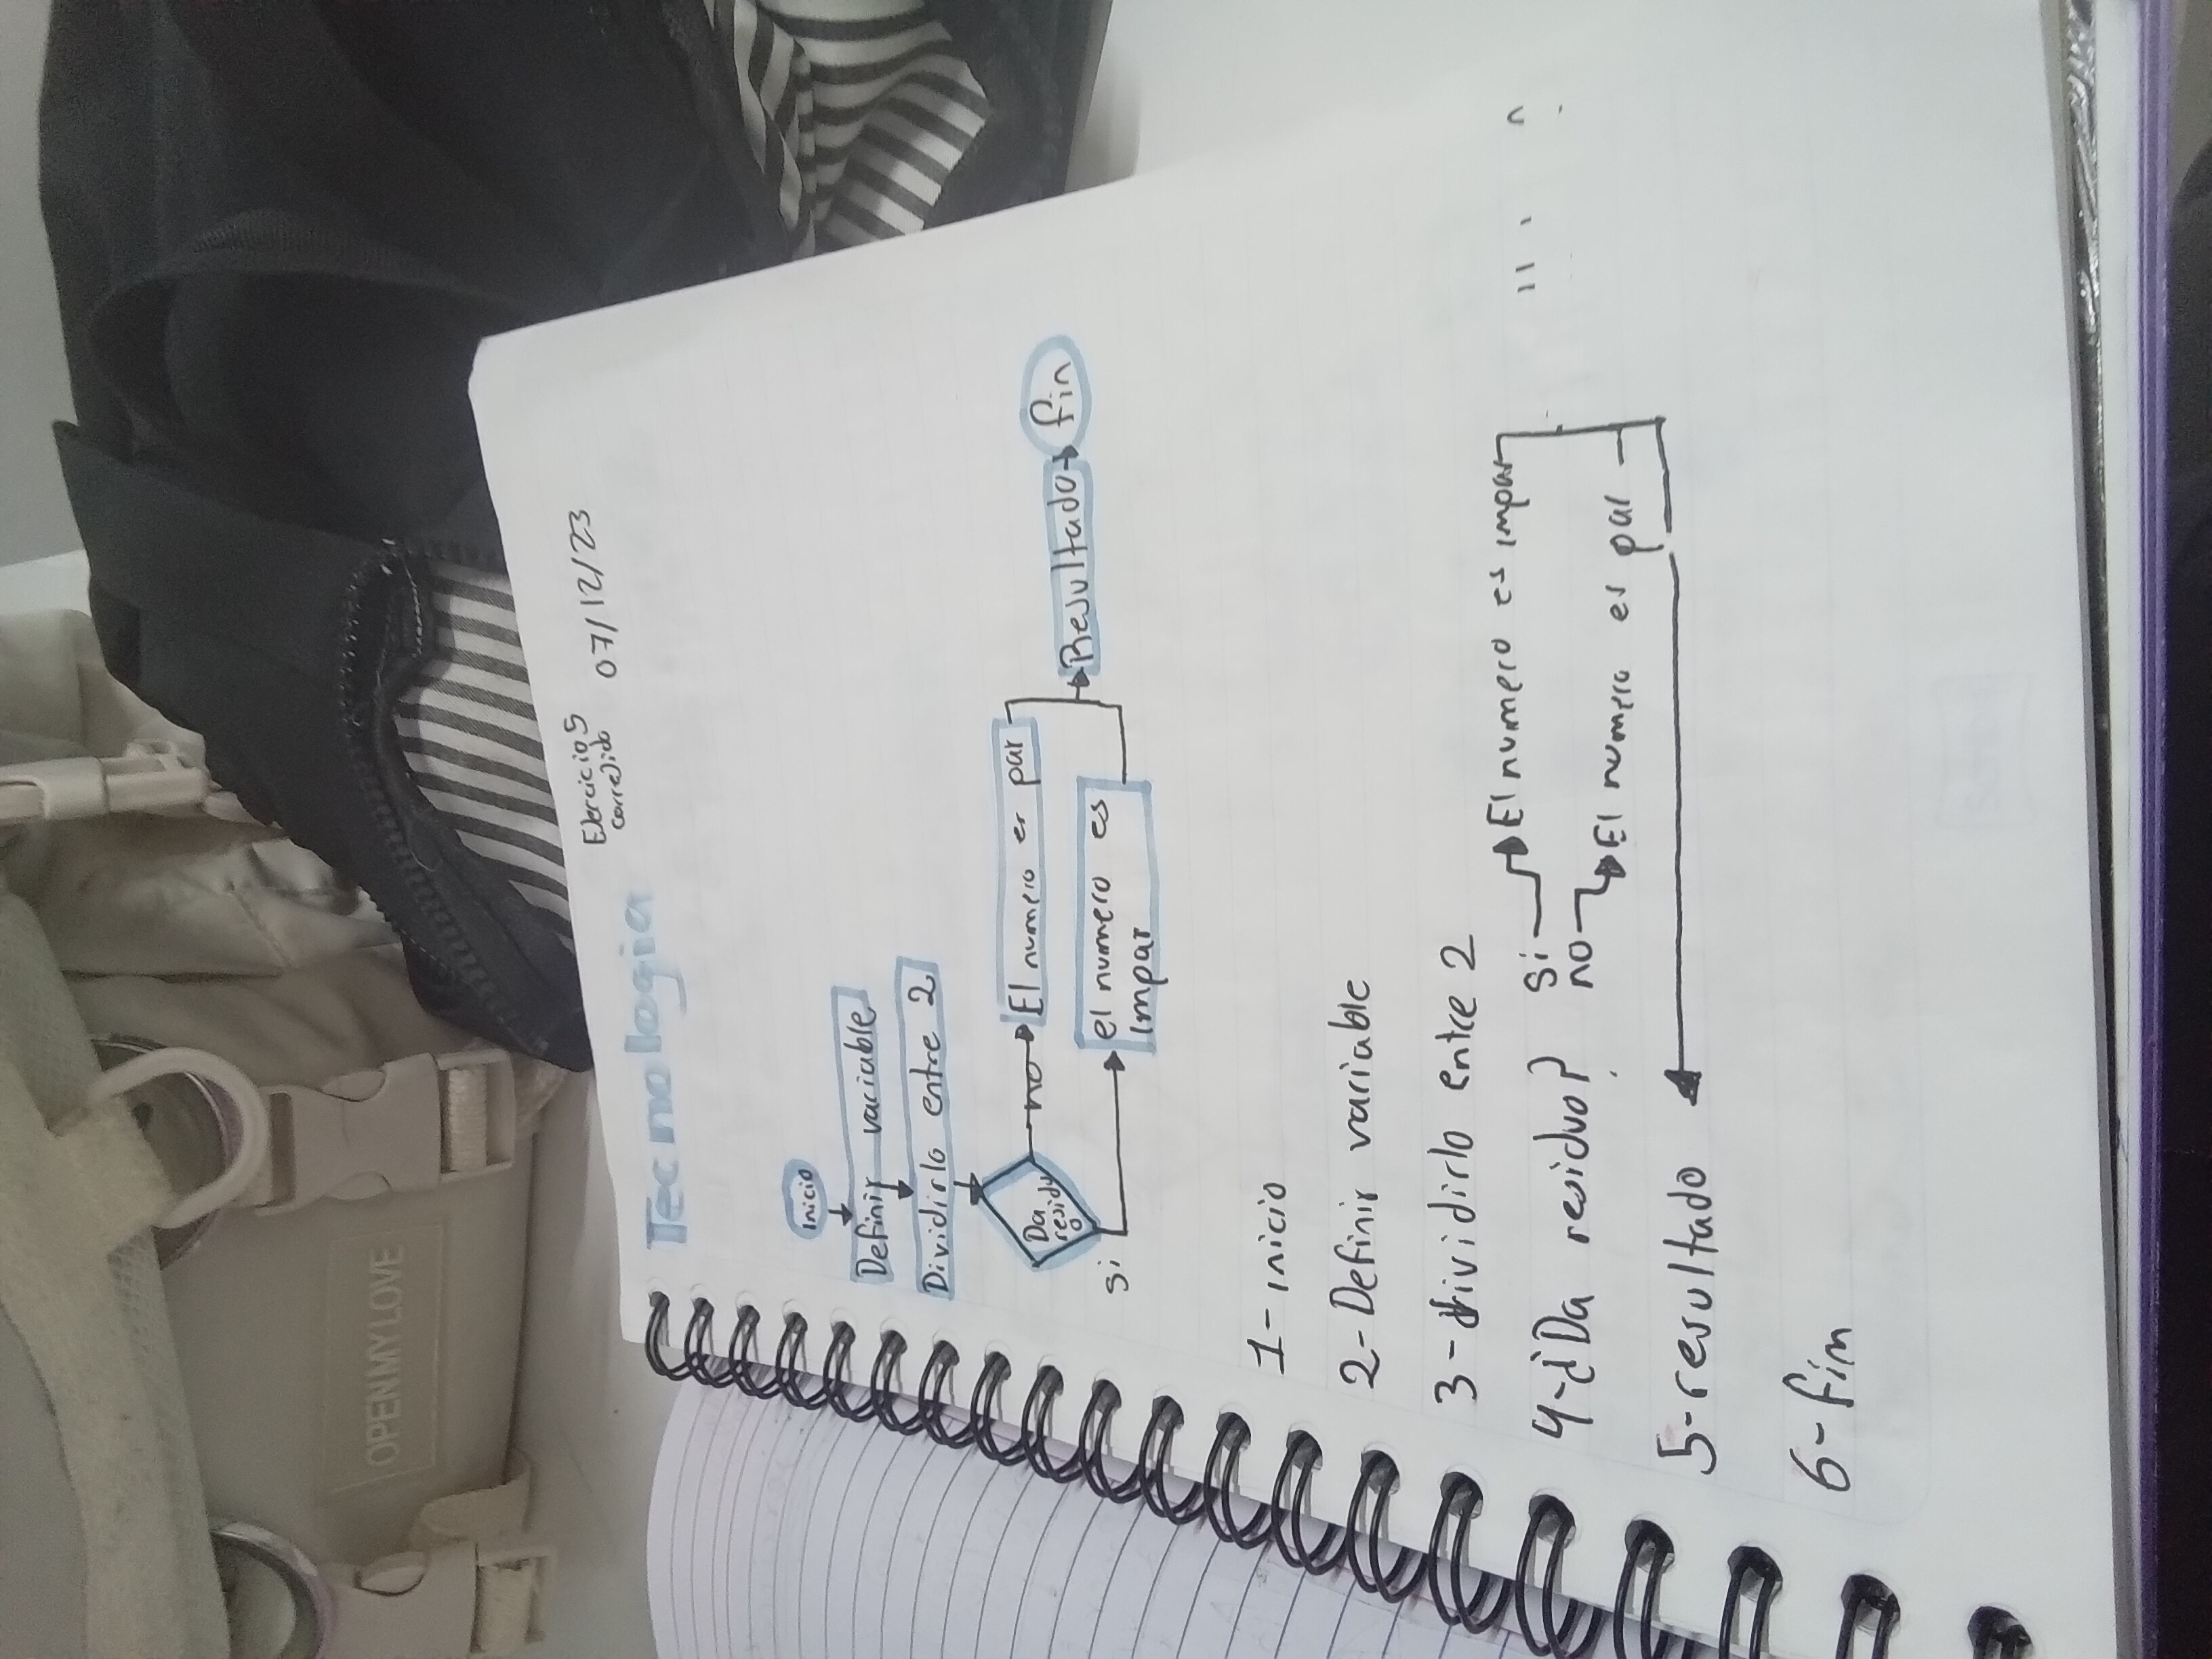 Tecnologia
Ejercicio 5
corregido
07/12/23
inicio
Definir variable
Dividirlo entre 2
Da
residu
o
no
El numero es par
si
el numero es
Impar
Resultado
fin
1- inicio
2- Definir variable
3- dividirlo entre 2
4- ¿Da residuo? si El numero es impar
no El numero es par
5- resultado
6- fin
OPENMYLOVE